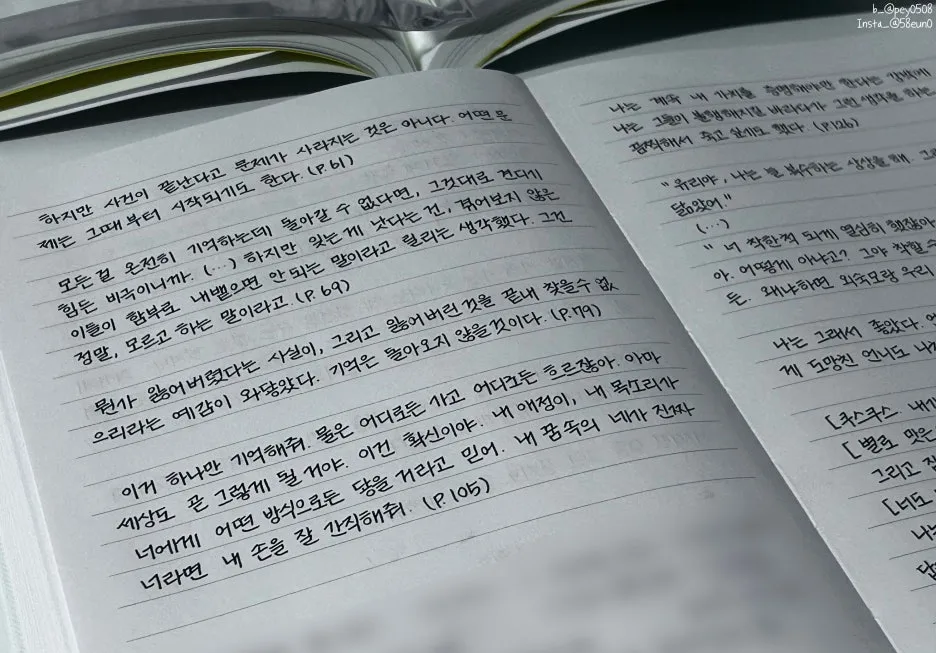 b_@pey0508
Insta_@58eun0
하지만 사건이 끝난다고 문제가 사라지는 것은 아니다. 어떤 문
제는 그때부터 시작되기도 한다. (P.61)
모든걸 온전히 기억하는데 돌아갈 수 없다면, 그것대로 견디기
힘든 비극이니까. (...) 하지만 잊는게 낫다는 건, 겪어보지 않은
이들이 함부로 내뱉으면 안되는 말이라고 릴리는 생각했다. 그건
정말, 모르고 하는 말이라고 (P. 69)
뭔가 잃어버렸다는 사실이, 그리고 잃어버린 것을 끝내 찾을수 없
으리라는 예감이 와닿았다. 기억은 돌아오지 않을것이다. (P.179)
이거 하나만 기억해줘. 물은 어디로든 가고 어디로든 흐르잖아. 아마
세상도 곧 그렇게 될 거야. 이건 확신이야. 내 애정이, 내 목소리가
너에게 어떤 방식으로든 닿을 거라고 믿어. 내 꿈속의 네가 진짜
너라면 내 손을 잘 간직해줘. (P.105)
나는 계속 내 가치를 증명해야만 한다는 강박에
나는 그들이 불행해지길 바라다가 그런 생각을 하는
끔찍해서 죽고 싶기도 했다 (P.126)
"유리야, 나는 늘 복수하는 상상을 해. 그
닮았어"
(...)
"너 착한척 되게 열심히 했잖아
아. 어떻게 아냐고? 그야 착할 수
든. 왜냐하면 외숙모랑 우리
나는 그래서 좋았다.
게 도망친 언니도
[쿠스쿠스 내가
[별로 맛은
그리고
[너도
나는